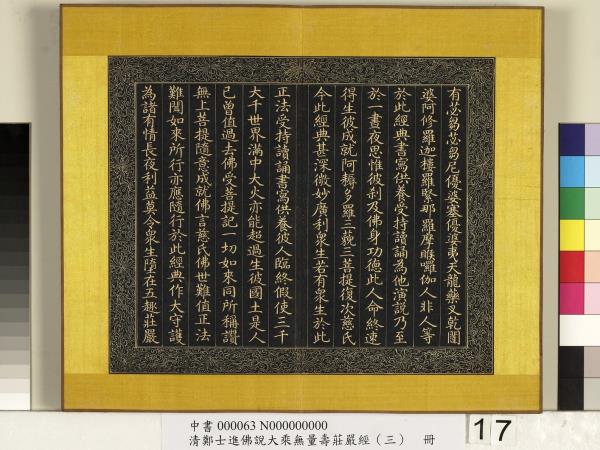 有苾芻苾芻尼優婆塞優婆夷天龍藥叉乾闥
婆阿修羅迦樓羅緊那羅摩睺囉伽人非人等
於此經典書寫供養受持讀誦為他演說乃至
於一晝夜思惟彼刹及佛身功德此人命終速
得生彼成就阿耨多羅三藐三菩提復次慈氏
今此經典甚深微妙廣利眾生若有眾生於此
正法受持讀誦書寫供養彼人臨終假使三千
大千世界滿中大火亦能超過生彼國土是人
已曾值過去佛受菩提記一切如來同所稱讚
無上菩提隨意成就佛言慈氏佛世難值正法
難聞如來所行亦應隨行於此經典作大守護
為諸有情長夜利益莫令眾生墮在五趣莊嚴
中書 000063 N000000000
清鄭士進佛說大乘無量壽莊嚴經（三） 冊
17